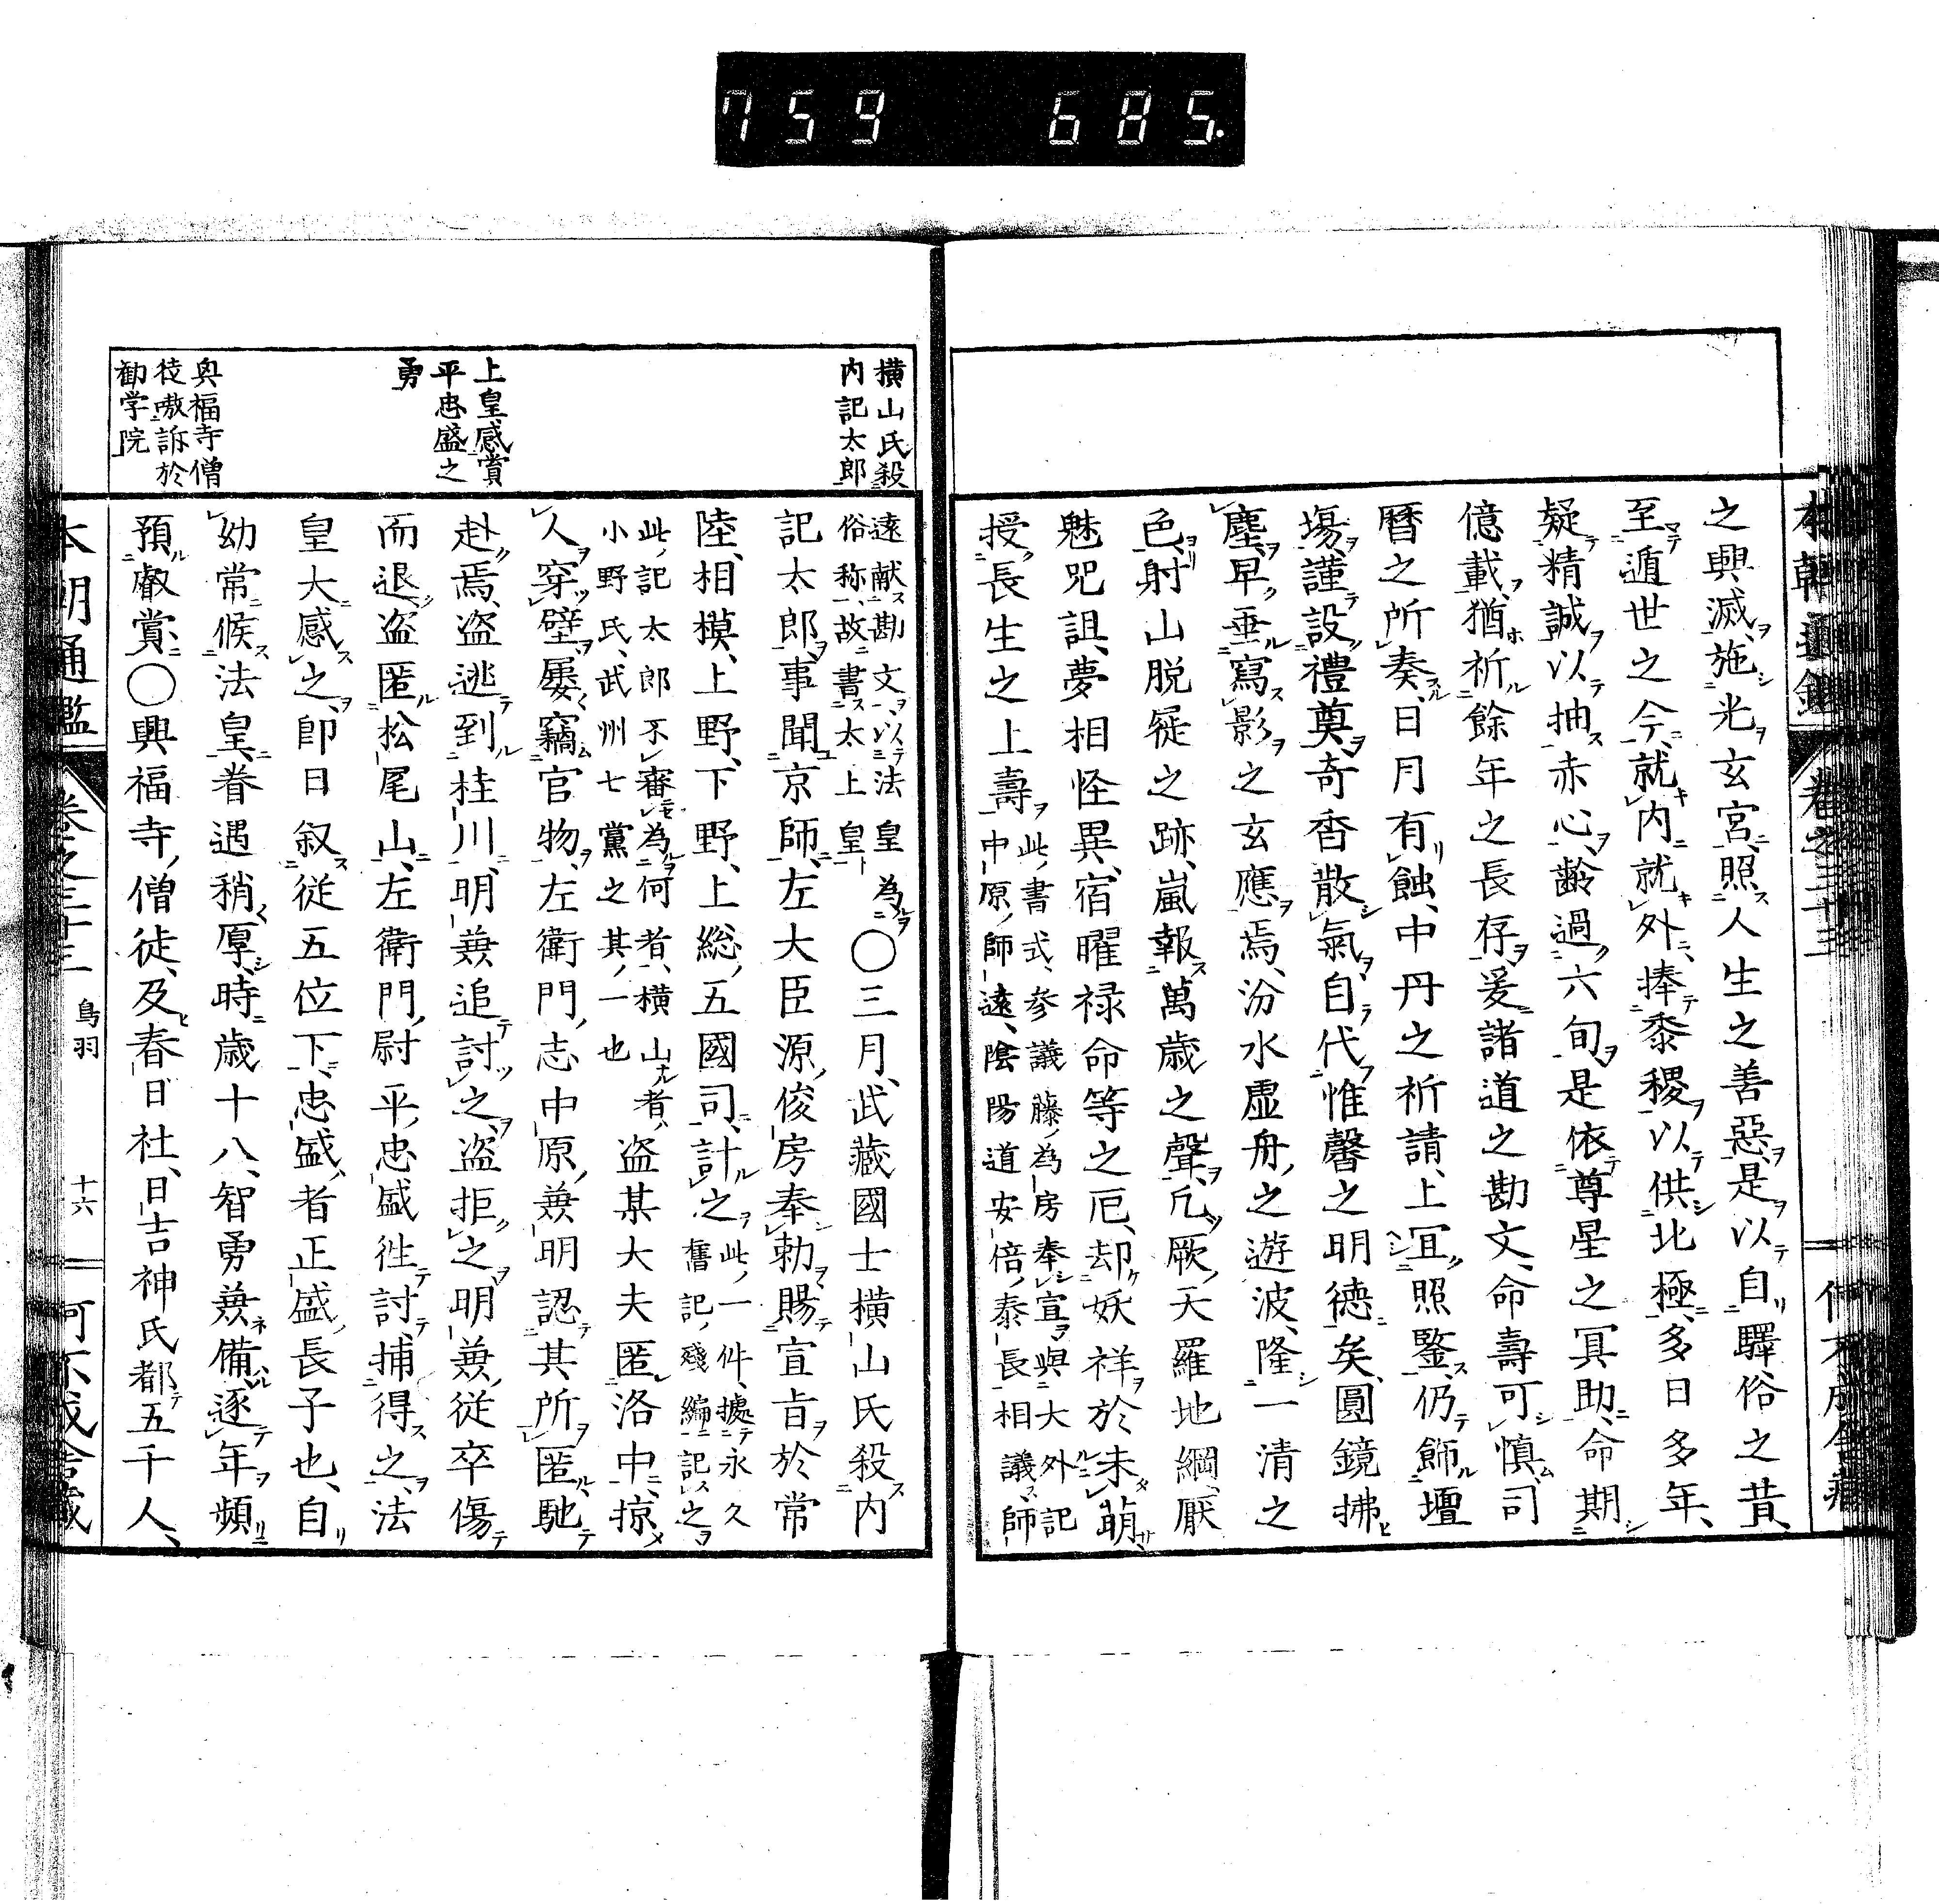 759 685.
之興滅、施光玄宮、照人生之善惡、是以自驛俗之昔、
至遁世之今、就内就外、捧黍稷以供北極、多日多年、
疑精誠以抽赤心、齡過六旬、是依尊星之冥助、命期
億載、猶祈餘年之長存、爰諸道之勘文、命壽可慎、司
曆之所奏、日月有蝕、中丹之祈請、上冝照鑒、仍飾壇
場、謹設禮奠、奇香散氣、自代惟馨之明德矣、圓鏡拂
塵、早垂寫影之玄應焉、汾水虛舟之遊波、隆一清之
色、射山脱屣之跡、嵐報萬歳之聲、凢厥天羅地綱、厭
魅咒詛、夢相怪異、宿曜禄命等之厄、却妖祥於未萠、
授長生之上壽
此書式、参議藤為房奉宣、與大外記
中原師遠、陰陽道安倍泰長相議、師
遠献勘文、以法皇為
俗称、故書太上皇
〇三月、武藏國士横山氏殺内
記太郎、事聞京師、左大臣源俊房奉勅、賜宣旨於常
陸、相模、上野、下野、上総五國司、計之
此一件、據永久
舊記殘編記之
此記太郎不審為何者、横山者、
小野氏、武州七黨之其一也
盗某大夫匿洛中、掠
人穿壁、屢竊官物、左衛門志中原兼明認其所匿、馳
赴焉、盗逃到桂川、明兼追討之、盗拒之、明兼從卒傷
而退、盗匿松尾山、左衛門尉平忠盛徃討、捕得之、法
皇大感之、即日叙從五位下、忠盛者正盛長子也、自
幼常候法皇、眷遇稍厚、時歳十八、智勇兼備、逐年頻
預叡賞〇興福寺僧徒、及春日社、日吉神氏都五千人、
横山氏殺
内記太郎
上皇感賞
平忠盛之
勇
興福寺僧
徒嗷訴於
勧学院
本朝通鑑 卷之三十三 鳥羽 十六